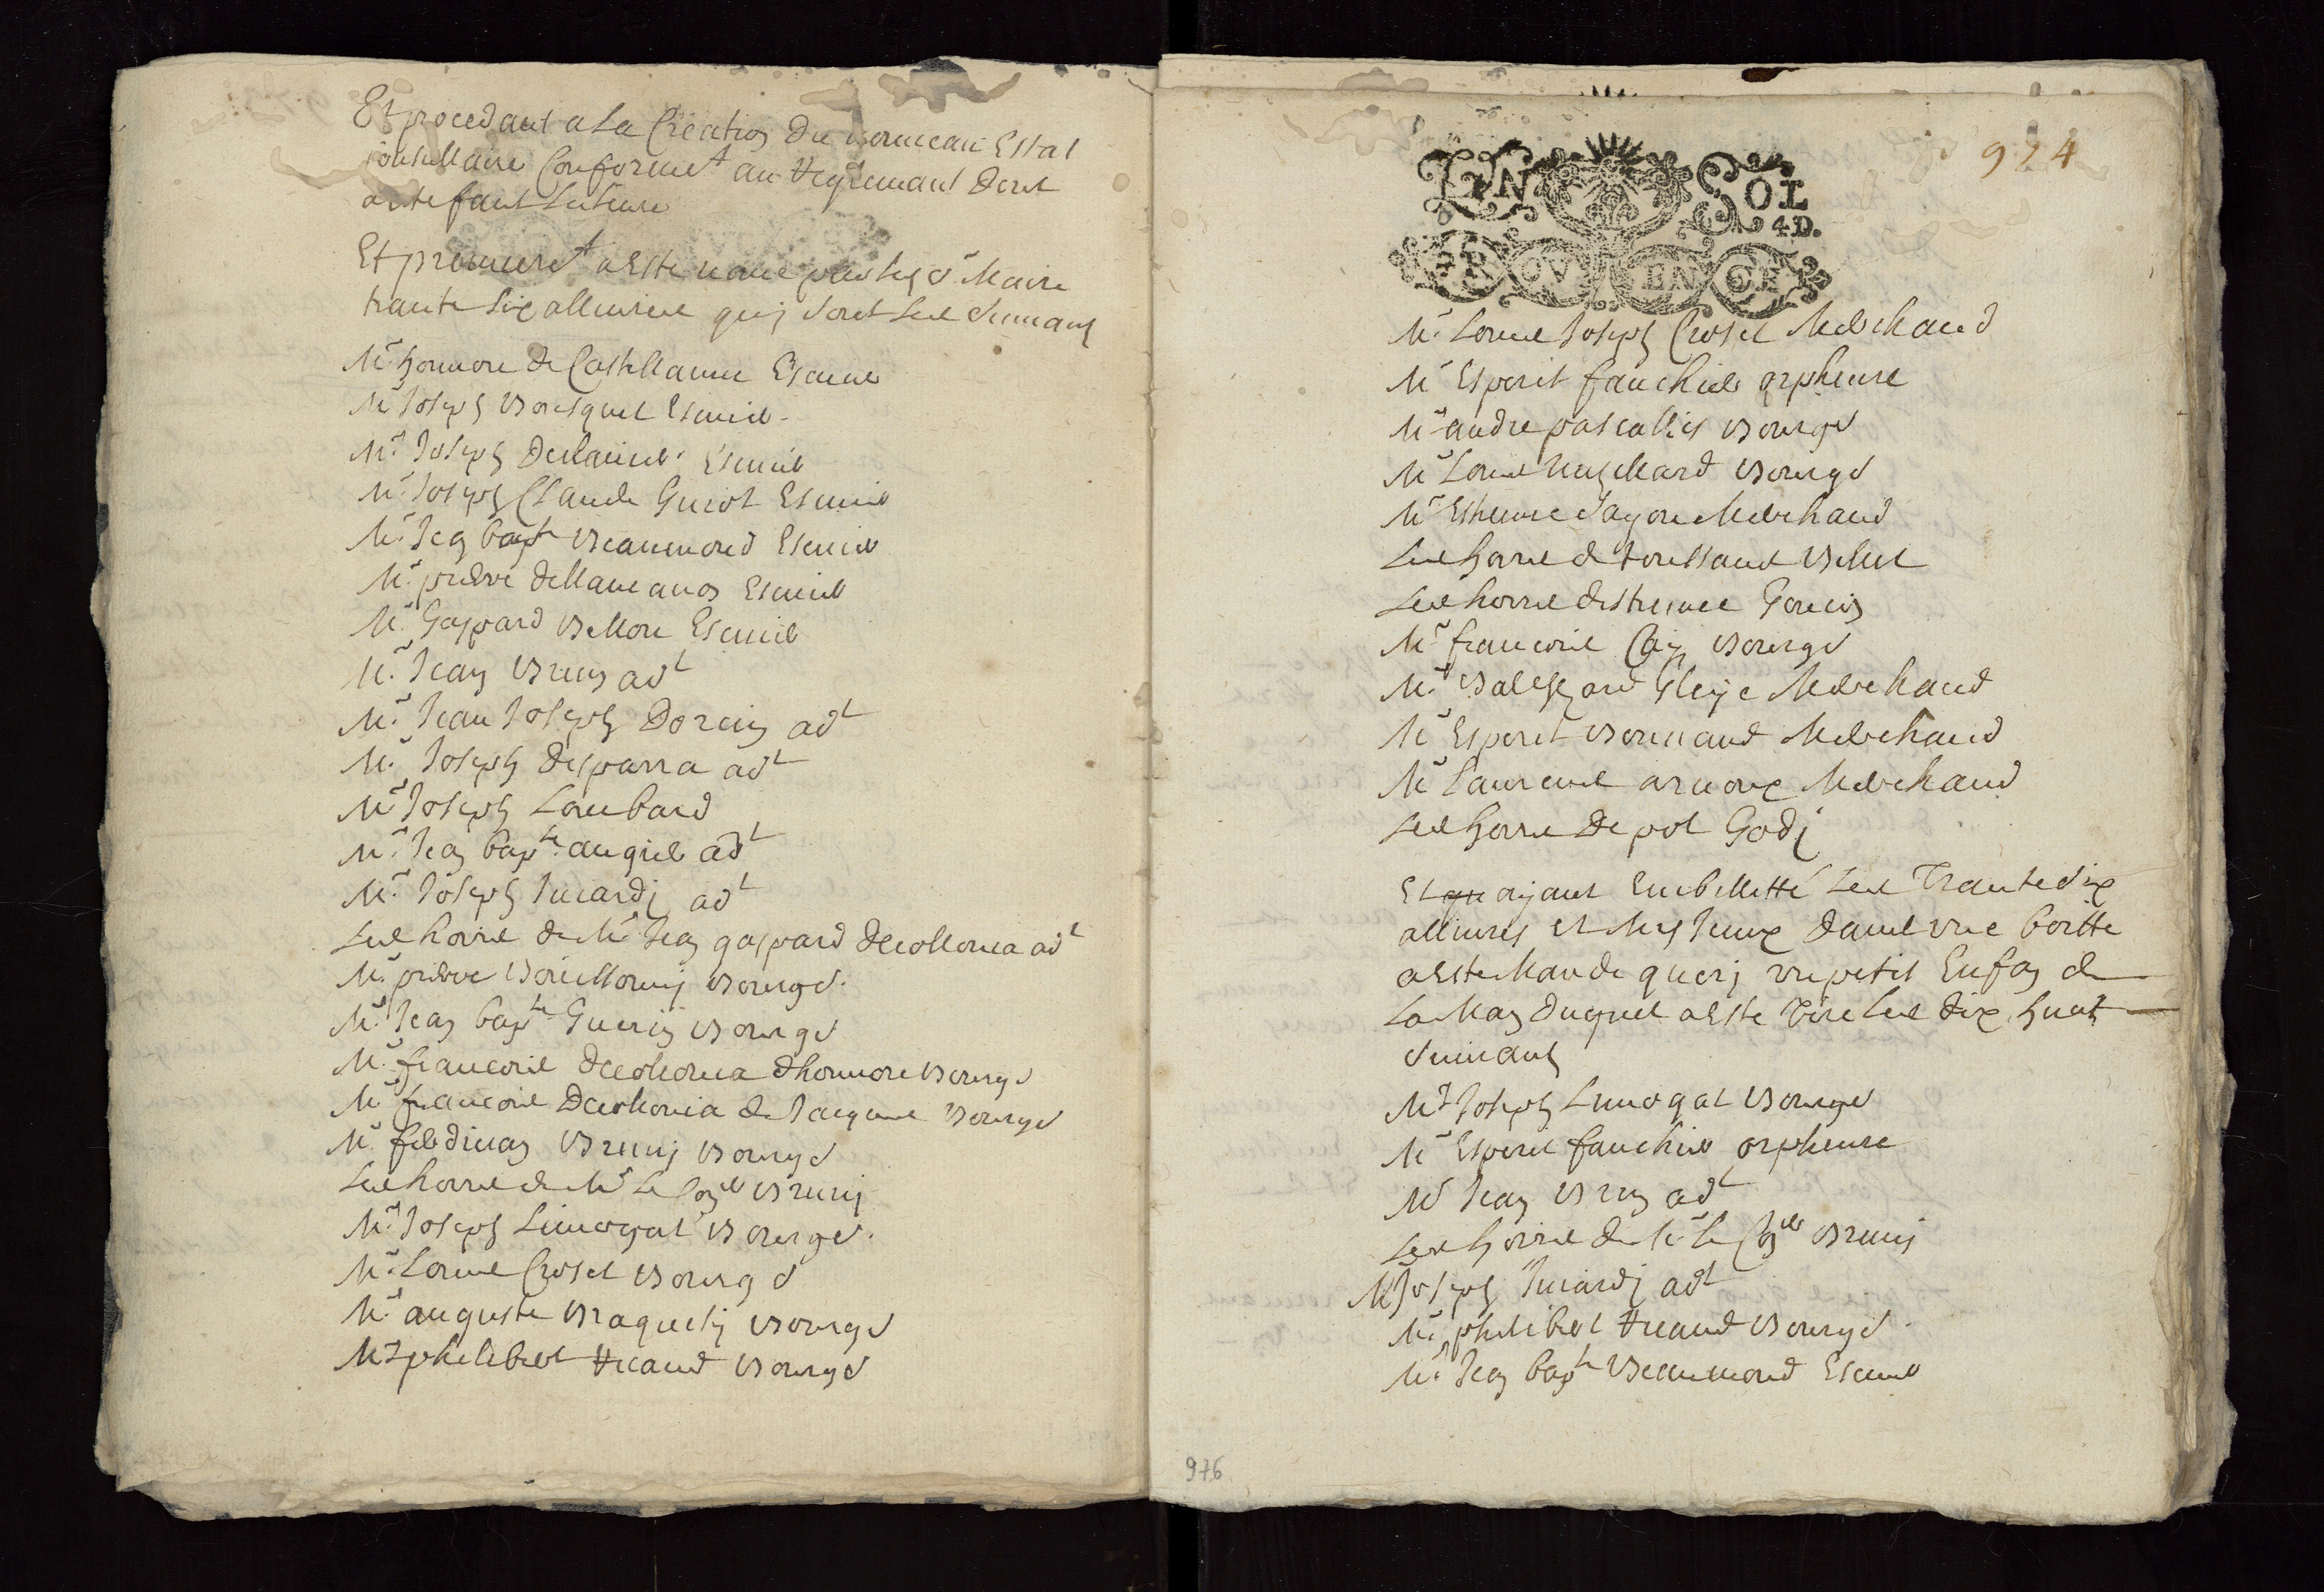 Et procedant a la Creation du nouveau Estat
consullaire Conformet au Reglemant dont
acte faict lecture
Et premieret a este nomé par led sr Maire
trante six allivres quj sont les suivans
Mr honnoré de Castellanne Escuier
Mr Joseph Boesquet Escuier
Mr Joseph Escuier
Mr Joseph Claude Guiot Escuier
Mr Jean bapte Beaumond Escuier
Mr pierre Escuier
Mr Gaspard Bellon Escuier
Mr Jean Brun adt
Mr Jean Joseph Dorcin adt
Mr Joseph desparra adt
Mr Joseph Lombard
Mr Jean bapte augier adt
Mr Joseph Juiardj adt
Les hoirs de Mr Jean gaspard decollonia adt
Mr pierre bourgs
Mr Jean bapte Guerin bourgs
Mr francois decolonia dhonnore bourgs
Mr francois decolonia de Jacques bourgs
Mr ferdinan Brunj bourgs
Les hoirs de Mr Le Coner Brunj
Mr Joseph Limogat bourgs
Mr Louis Croset bourgs
Mr auguste Braquetj bourgs
Mr philibert bourgs
924
GEN SOL
4D.
PROVENCE
Mr Louis Joseph Croset Merchand
Mr Esperit fauchier orpheure
Mr andre pascallis bourgs
Mr Louis bourgs
Mr Estienne Merchand
Les hoirs de toussant
Les hoirs destienne Gouein
Mr francois bourgs
Mr Baltesard Gleije Merchand
Mr Esperit Bernard Merchand
Mr Laurens arnoux Merchand
Les hoirs de pol Godj
Et qu aijant Enbilletté Les Trante six
allivres et Mis Jceux dans vne boitte
a este Mandé querj vn petit Enfan de
La Man duquel a este tire Les dix huat
suivans
Mr Joseph Limogat bourgs
Mr Esperit fauchier orpheure
Mr Jean Brun adt
Les hoirs de Mr Le Coner Brunj
Mr Joseph Juiardj adt
Mr philibert bourgs
Mr Jean bapte Beaumond Escuier
976